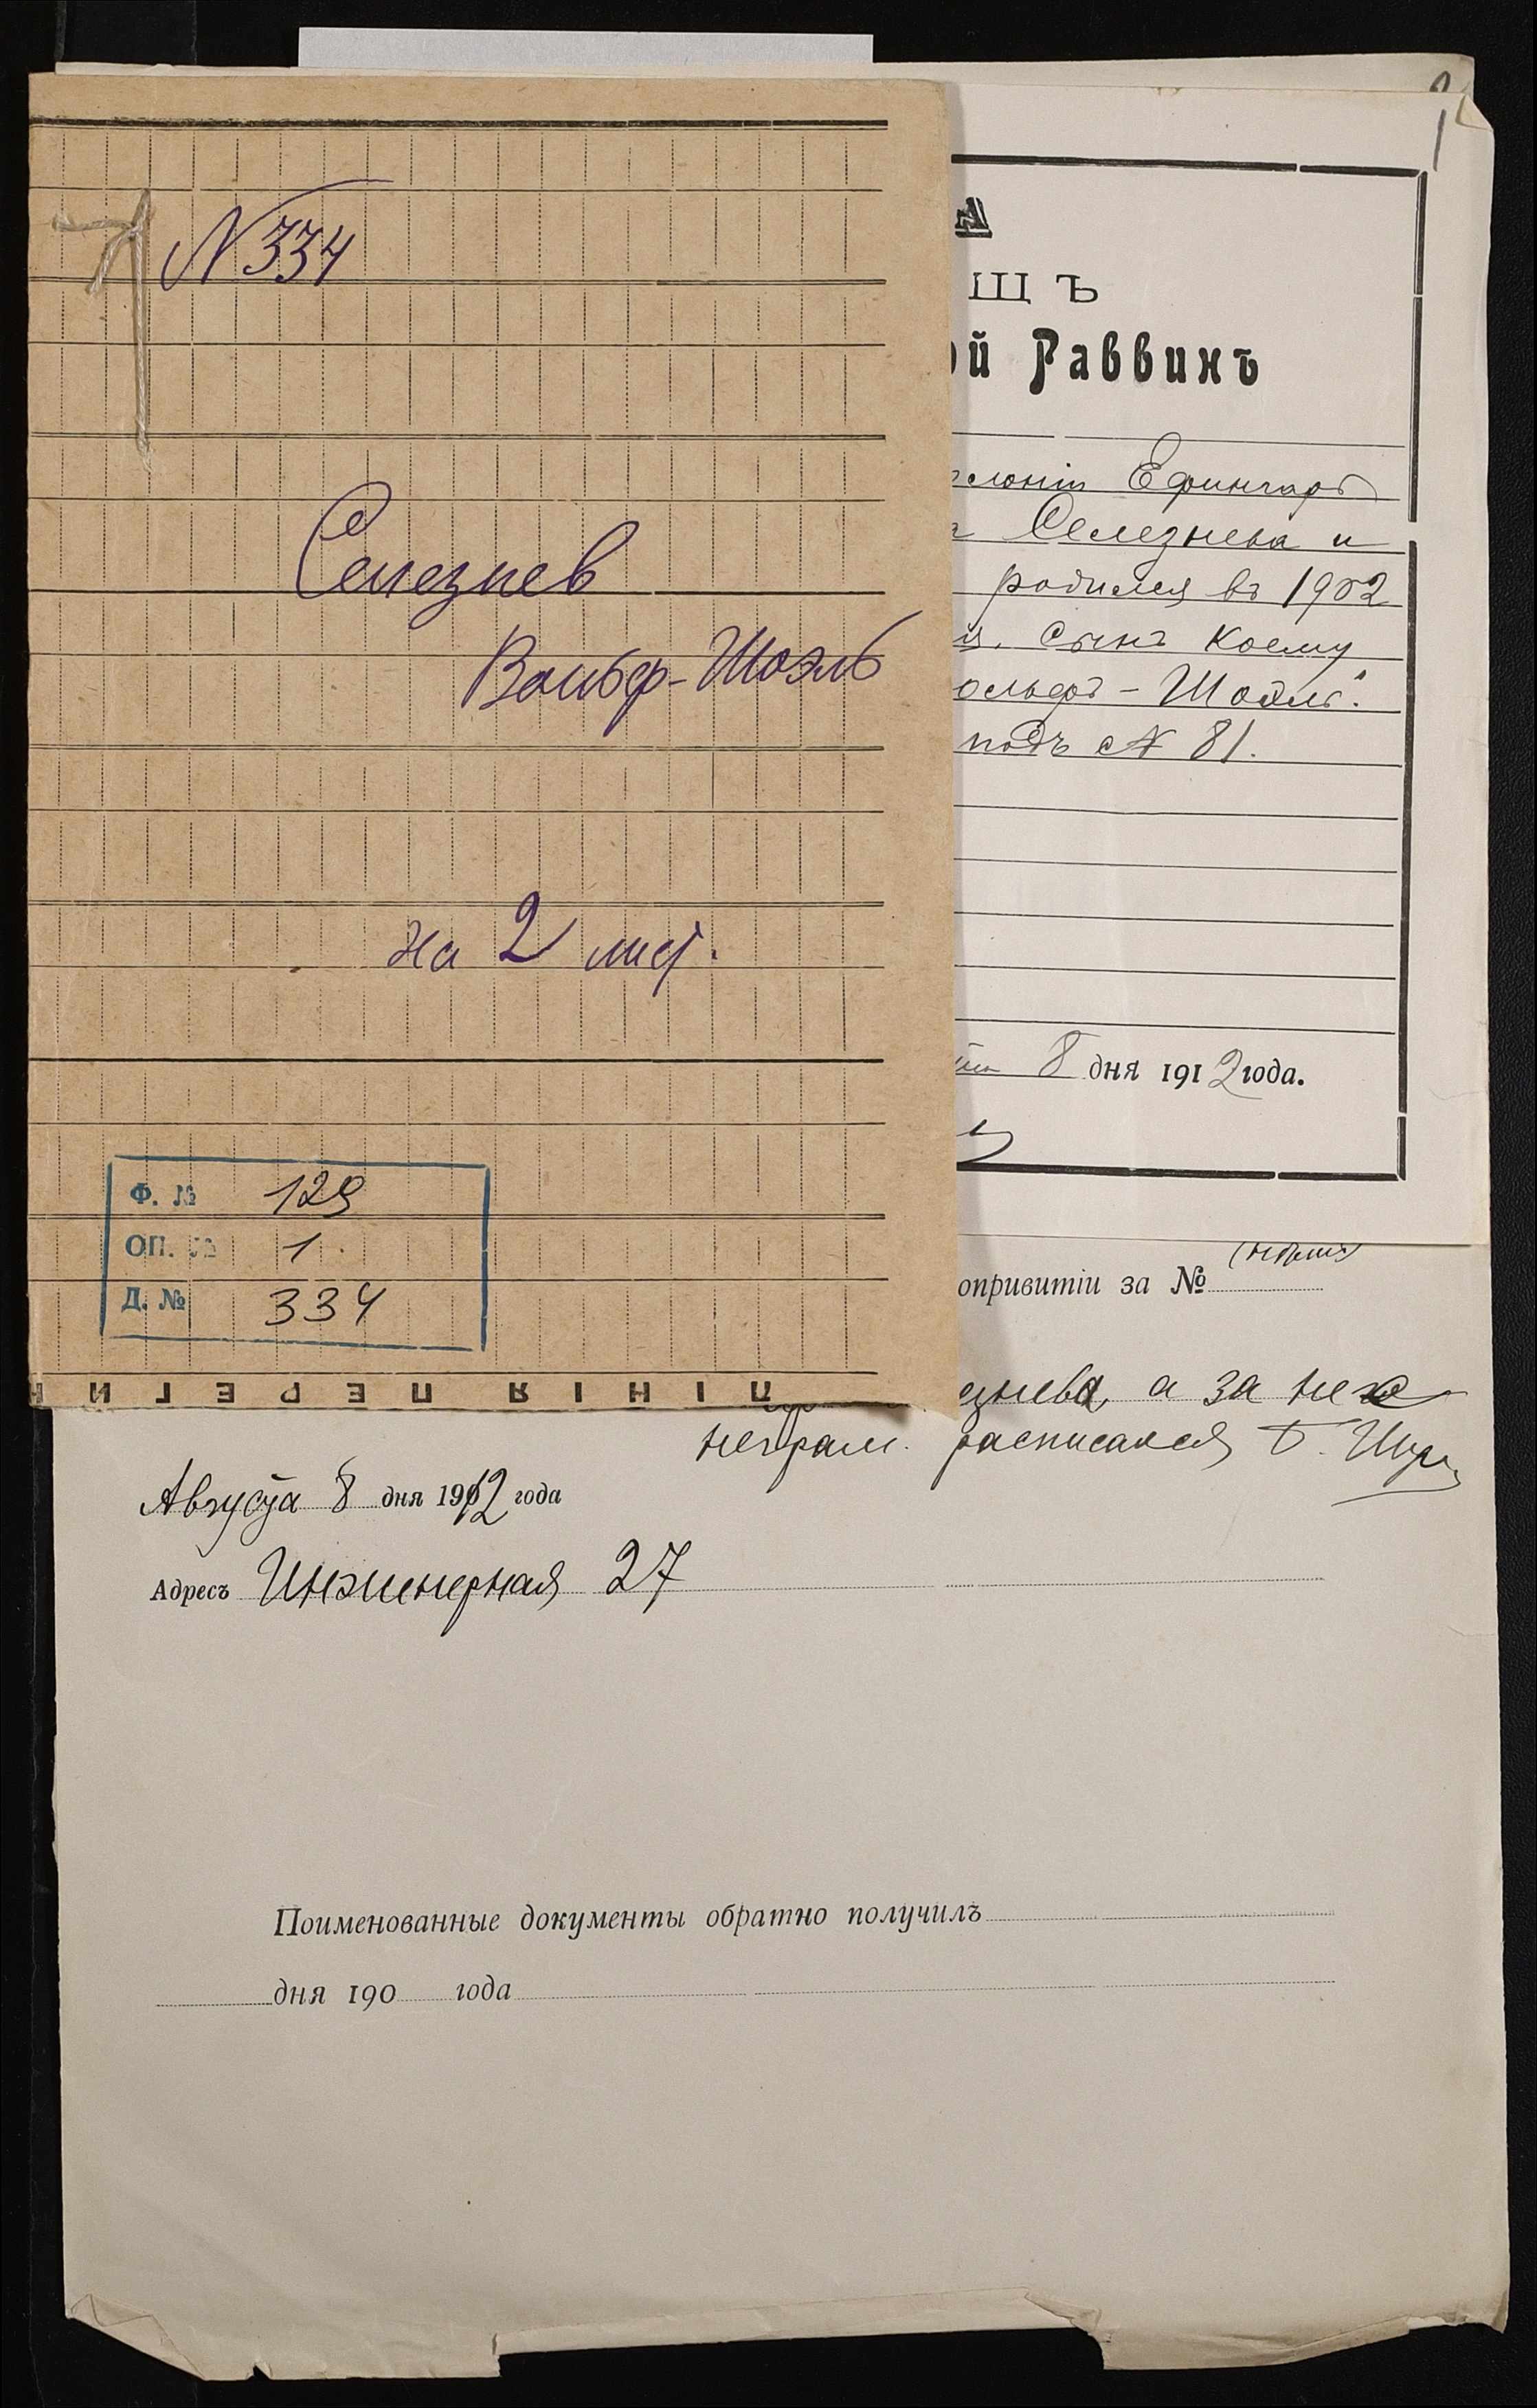 N 334
Селезнев
Вольф-Шоэль
на 2 лист.
Ф. № 129
ОП. № 1.
Д. № 334
ЛИНІЯ ПЕРЕГИ
1
А
ЩЪ
ой Раввинъ
лоніи Ефингаръ
Селезнева и
родился въ 1902
сынъ коему
ольфъ-Шоэль".
подъ № 81.
8 дня 1912 года.
опривитіи за №
езнева, а за нее
неграм. расписался Б.
Августа 8 дня 1912 года
Адресъ Инженерная 27
Поименованные документы обратно получилъ
дня 190 года